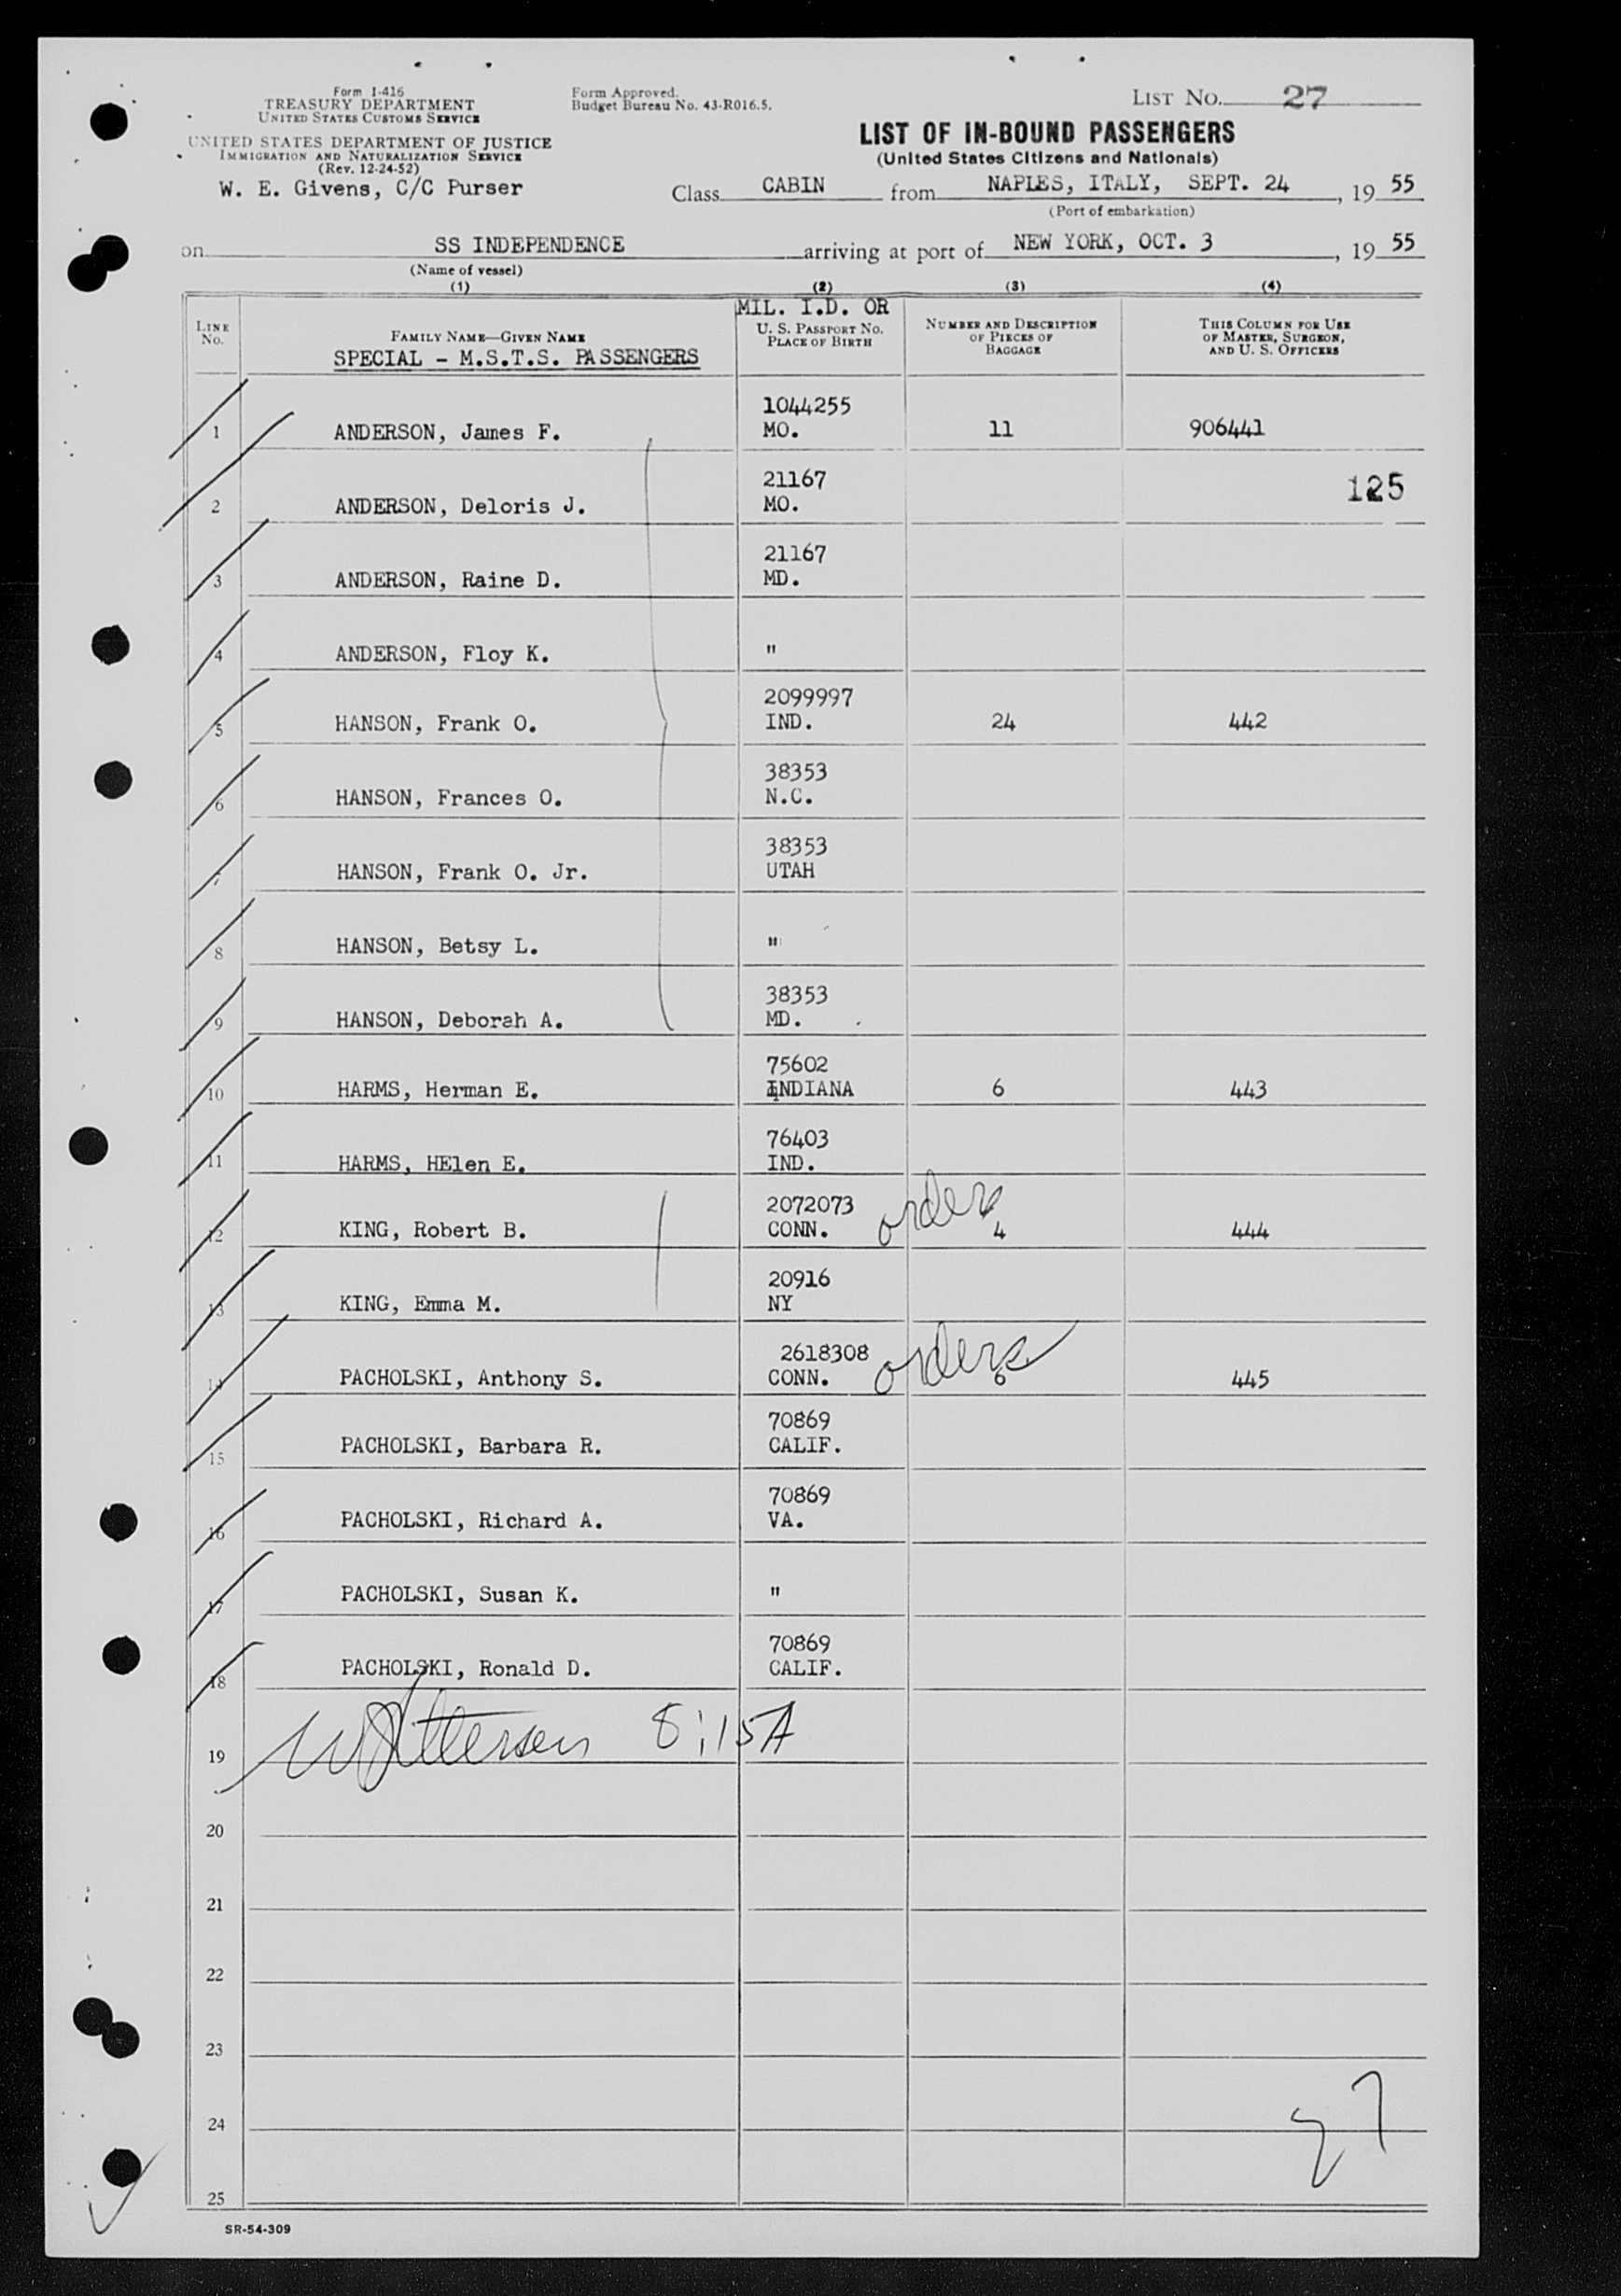 Form I-416
TREASURY DEPARTMENT
UNITED STATES CUSTOMS SERVICE
UNITED STATES DEPARTMENT OF JUSTICE
IMMIGRATION AND NATURALIZATION SERVICE
(Rev. 12-24-52)
W. E. Givens, C/C Purser
Form Approved.
Budget Bureau No. 43-R016.5.
LIST NO. 27
LIST OF IN-BOUND PASSENGERS
(United States Citizens and Nationals)
Class CABIN from NAPLES, ITALY, SEPT. 24, 19 55
(Port of embarkation)
on SS INDEPENDENCE arriving at port of NEW YORK, OCT. 3, 19 55
(Name of vessel)
(1) (2) (3) (4)
LINE NO.
FAMILY NAME—GIVEN NAME
SPECIAL - M.S.T.S. PASSENGERS
MIL. I.D. OR
U. S. PASSPORT NO.
PLACE OF BIRTH
NUMBER AND DESCRIPTION
OF PIECES OF
BAGGAGE
THIS COLUMN FOR USE
OF MASTER, SURGEON,
AND U. S. OFFICERS
1044255
1 ANDERSON, James F. MO. 11 906441
21167 125
2 ANDERSON, Deloris J. MO.
21167
3 ANDERSON, Raine D. MD.
4 ANDERSON, Floy K. "
2099997
5 HANSON, Frank O. IND. 24 442
38353
6 HANSON, Frances O. N.C.
38353
7 HANSON, Frank O. Jr. UTAH
8 HANSON, Betsy L. "
38353
9 HANSON, Deborah A. MD.
75602
10 HARMS, Herman E. INDIANA 6 443
76403
11 HARMS, HElen E. IND.
2072073 orders
12 KING, Robert B. CONN. 4 444
20916
13 KING, Emma M. NY
2618308 orders
14 PACHOLSKI, Anthony S. CONN. 6 445
70869
15 PACHOLSKI, Barbara R. CALIF.
70869
16 PACHOLSKI, Richard A. VA.
17 PACHOLSKI, Susan K. "
70869
18 PACHOLSKI, Ronald D. CALIF.
19 8:15A
20
21
22
23
24
27
25
SR-54-309